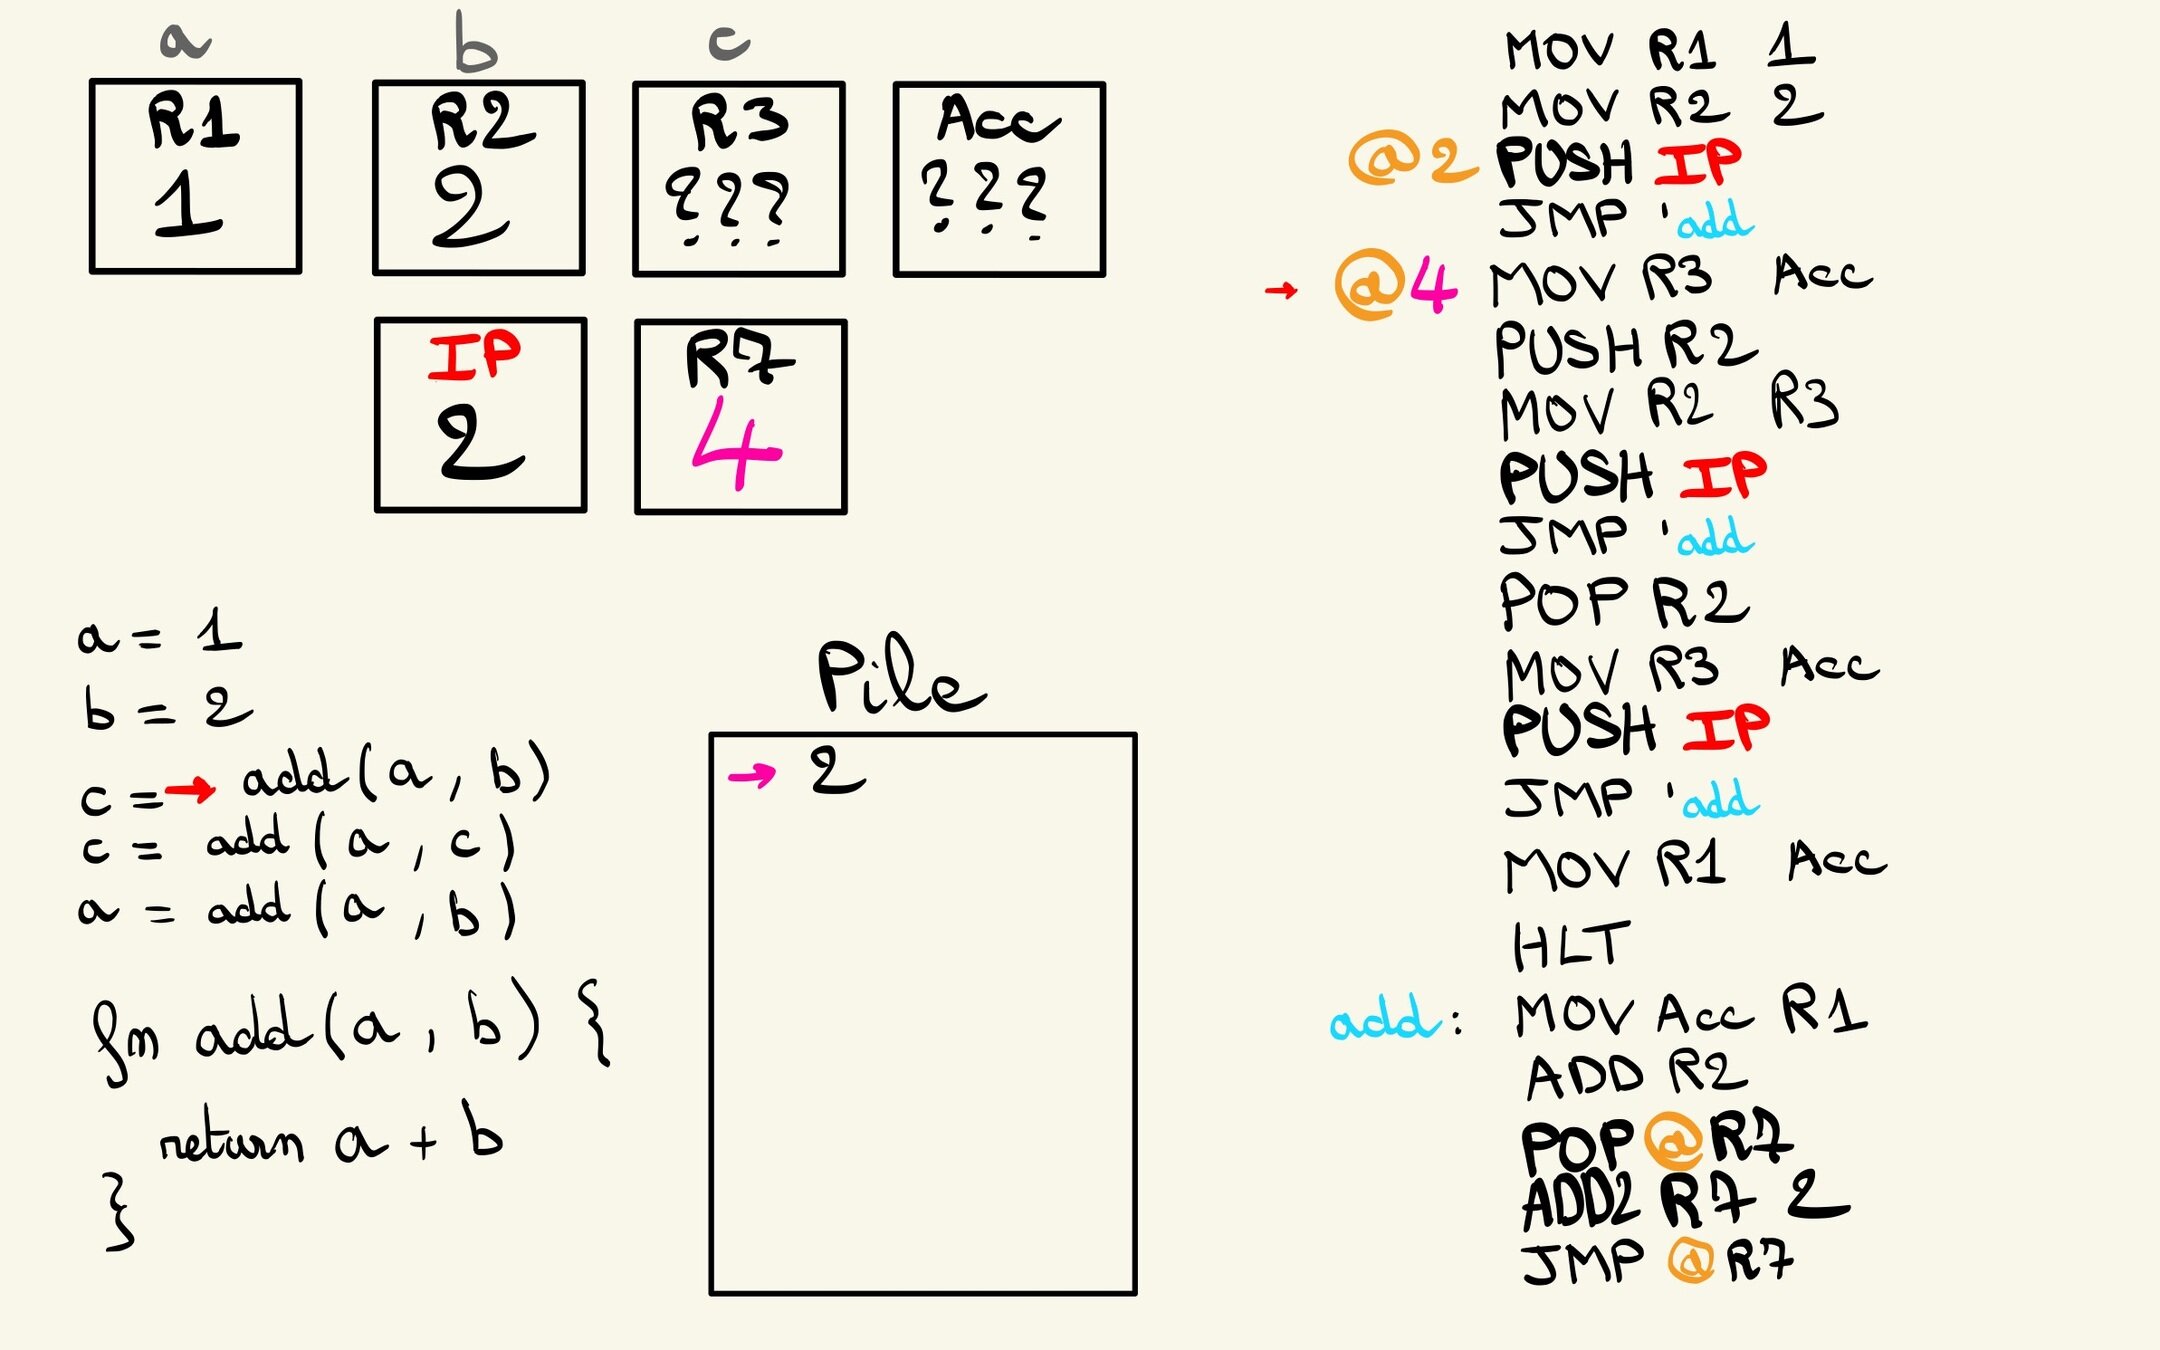 a b c
R1 R2 R3 Acc
1 2 ??? ???
IP R7
2 4
a = 1
b = 2
c = → add(a, b)
c = add(a, c)
a = add(a, b)
fn add(a, b) {
return a + b
}
Pile
→ 2
MOV R1 1
MOV R2 2
@2 PUSH IP
JMP 'add
→ @4 MOV R3 Acc
PUSH R2
MOV R2 R3
PUSH IP
JMP 'add
POP R2
MOV R3 Acc
PUSH IP
JMP 'add
MOV R1 Acc
HLT
add: MOV Acc R1
ADD R2
POP @R7
ADD2 R7 2
JMP @R7